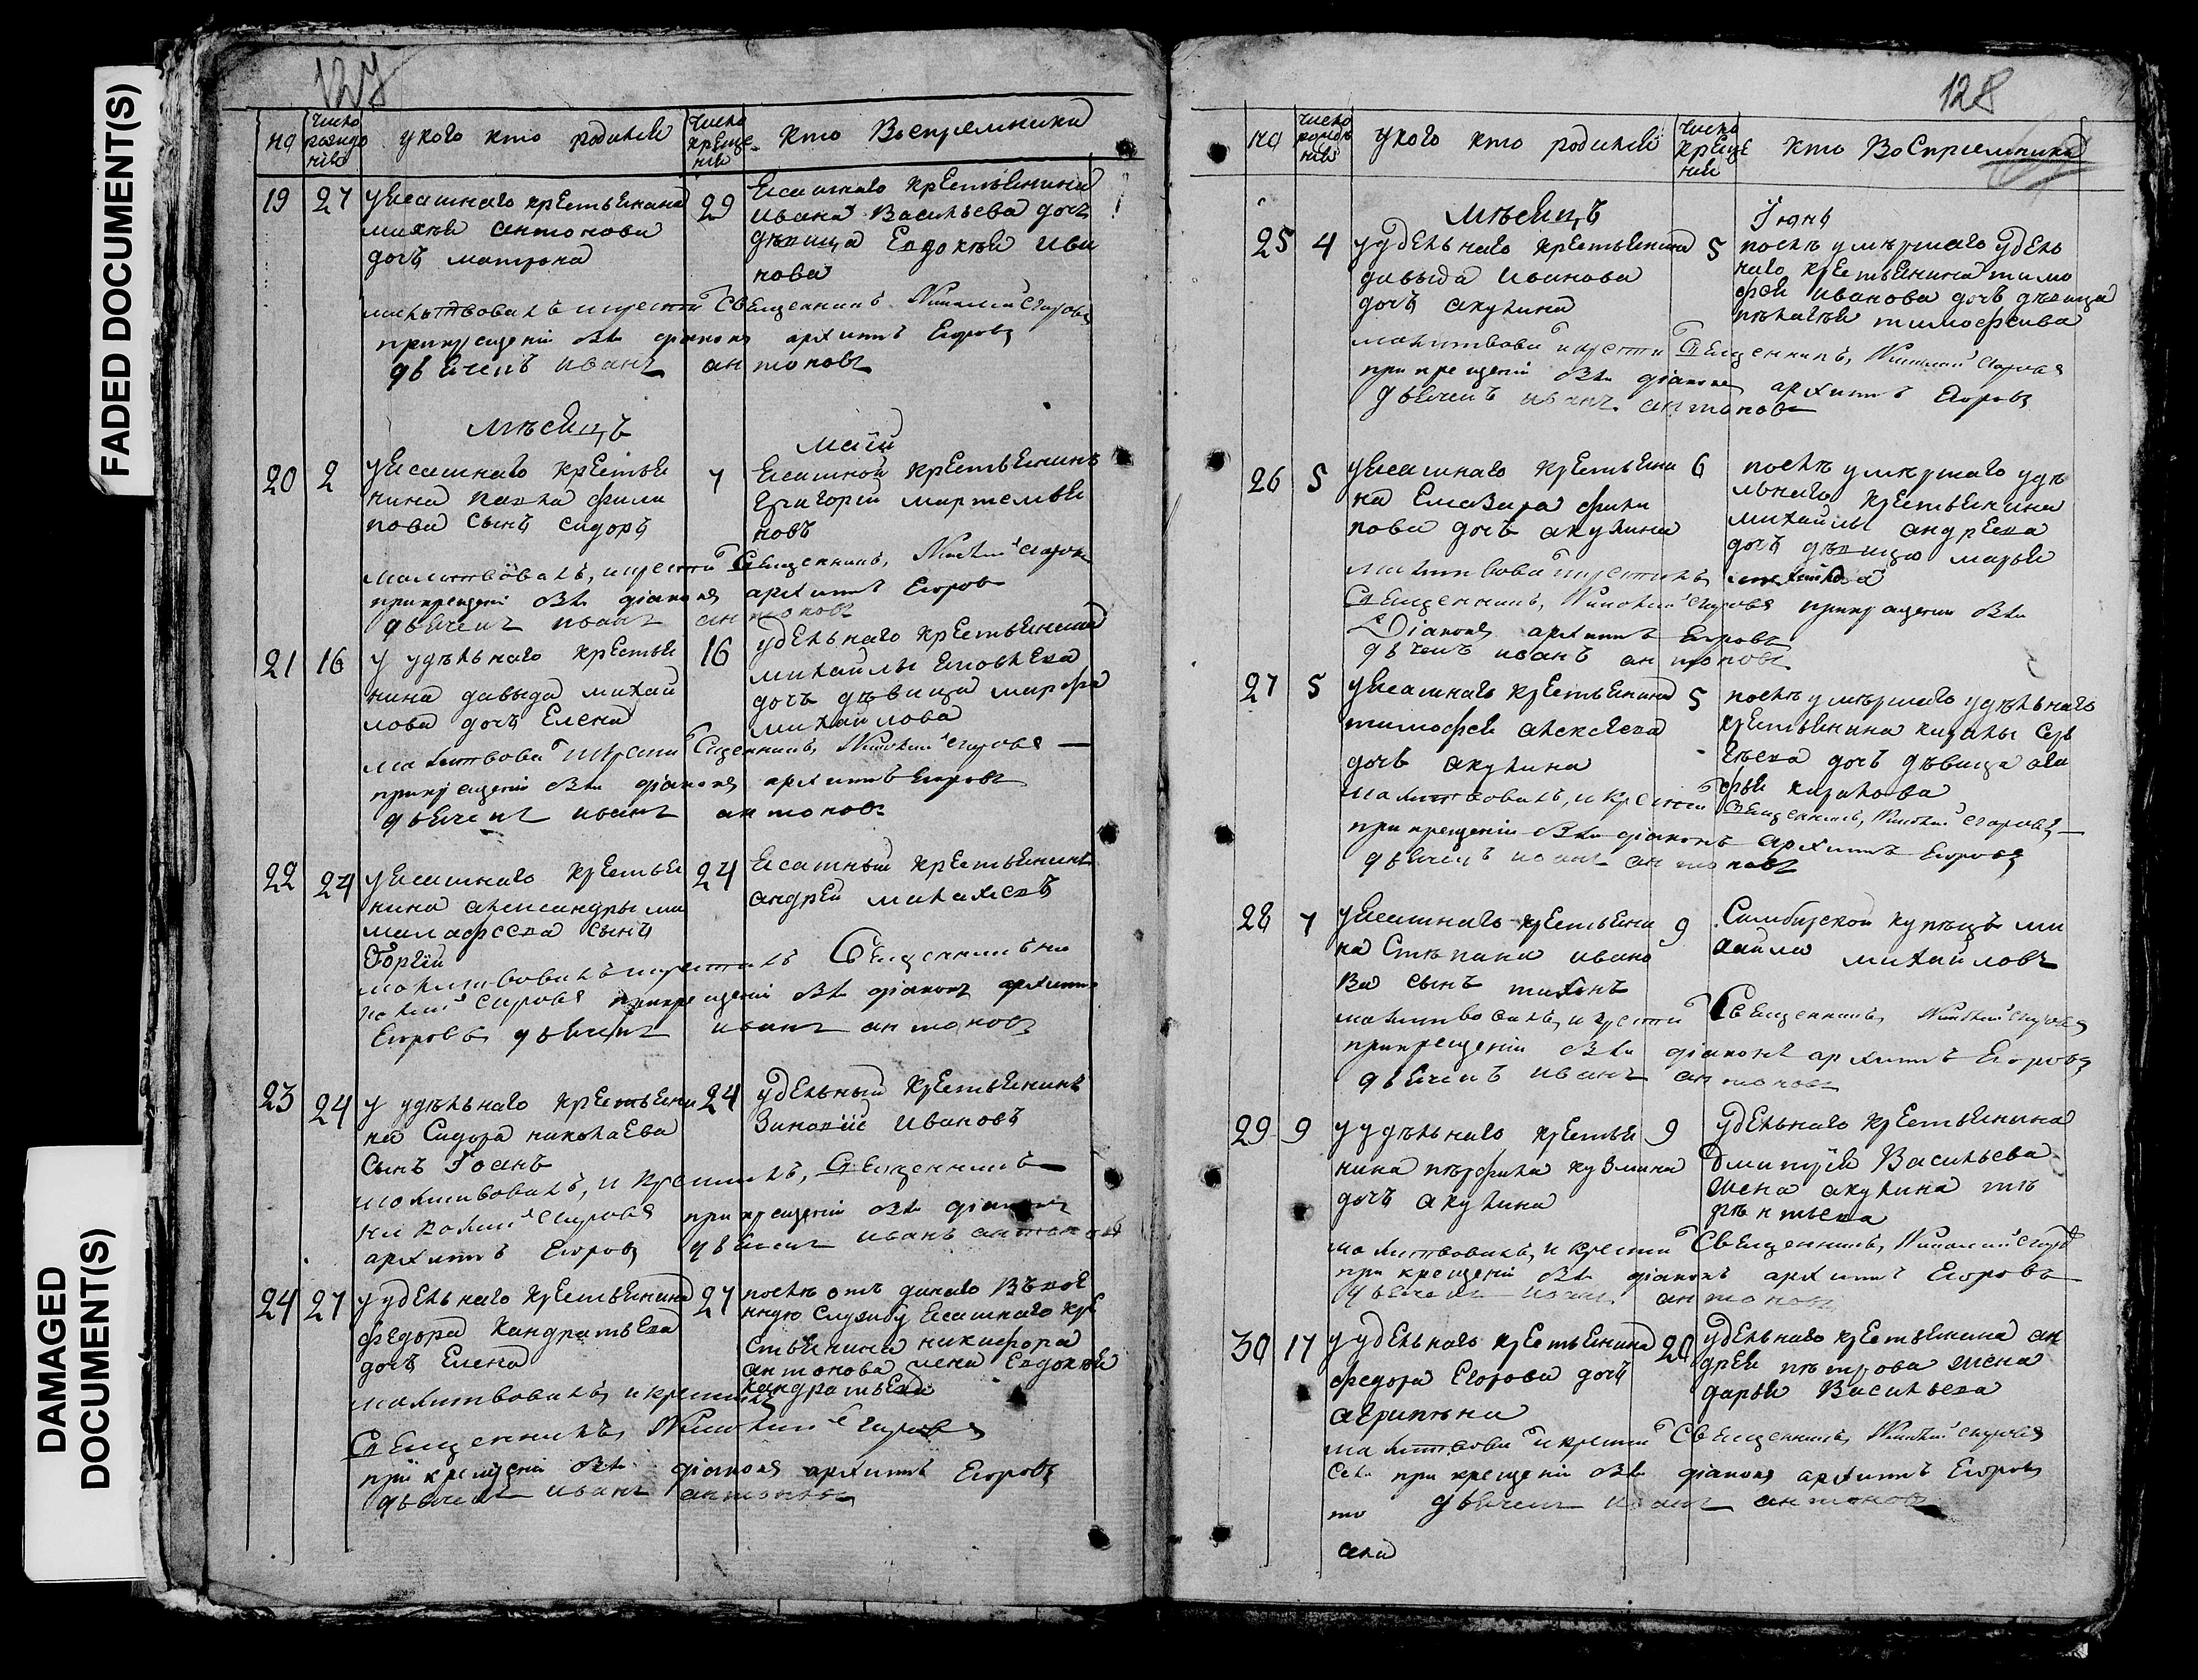 FADED DOCUMENT(S)
DAMAGED
DOCUMENT(S)
127
но
число
рожде
нія
у кого кто родился
число
креще
нія
кто Воспремники
19 27
уясашнаго крестьянина
михѣя антонова
дочъ матрона
29
ясашнаго крестьянина
ивана Васильева дочъ
дѣвица Евдокѣя ива
нова
священникъ Николай
при крещеніи діаконъ архипъ Егоровъ
дьячекъ иванъ антоновъ
мѣсяцъ
маія
20 2
уясашнаго крестья
нина павла фили
пова сынъ сидоръ
7
ясашной крестьянинъ
Григорій мартемья
новъ
молитвовалъ, и крестилъ Священникъ, Николай
при крещеніи діаконъ архипъ Егоровъ
дьячекъ иванъ антоновъ
21 16
у удѣльнаго крестья
нина давыда михай
лова дочъ Елена
16
удельнаго крестьянина
михайлы яковлева
дочъ дѣвица марфа
михайлова
молитвова и крести Священникъ, Николай
при крещеніи діаконъ архипъ Егоровъ
дьячекъ иванъ антоновъ
22 24
уясашнаго крестья
нина александры ма
сынъ
Горгій
24
ясашный крестьянинъ
андрей
молитвовалъ и крестилъ Священникъ ни
колай при крещеніи діаконъ архипъ
Егоровъ дьячекъ иванъ антоновъ
23 24
у удѣльнаго крестьяни
на Сидора николаева
сынъ Іоанъ
24
удельный крестьянинъ
Зиновіе ивановъ
молитвовалъ, и крестилъ, Священникъ
николай при крещеніи діаконъ
архипъ Егоровъ дьячекъ иванъ антоновъ
24 27
у удельнаго крестьянина
федора Кандратьева
дочъ Елена
27
послѣ отъ данаго Въвое
нную Службу ясашнаго кре
стьянина никифора
антонова жена Евдокѣя
кандратьева
молитвовалъ и крестилъ
Священникъ, Николай
при крещеніи діаконъ архипъ Егоровъ
дьячекъ иванъ антоновъ
128
но
число
рожде
нія
у кого кто родился
число
креще
нія
кто Воспремники
мѣсяцъ
Іюня
25 4
у удельнаго крестьянина
давыда иванова
дочъ акулина
5
послѣ умѣршаго удель
наго крестьянина тимо
фея иванова дочъ дѣвица
пѣлагѣя тимофеива
молитвова и крести Священникъ, Николай
при крещеніи діаконъ архипъ Егоровъ
дьячекъ иванъ антоновъ
26 5
уясашнаго крестьяни
на Елазара фили
пова дочъ акулина
6
послѣ умѣршаго удѣ
льнаго крестьянина
михайлы андрева
дочъ дѣвица марья
михайлова
молитвова и крестилъ
Священникъ, Николай при крещеніи
Діаконъ архипъ Егоровъ
дьячекъ иванъ антоновъ
27 5
уясашнаго крестьянина
тимофея алексеева
дочъ акулина
5
послѣ умѣршаго удѣльнаго
крестьянина кирилы Сер
гѣева дочъ дѣвица ага
фья кирилова
молитвовалъ, и крести Священникъ, Николай
при крещеніи діаконъ архипъ Егоровъ
дьячекъ иванъ антоновъ
28 7
уясашнаго крестьяни
на Стѣпана ивано
ва сынъ тихонъ
9
Симбирской купецъ ми
хайла михайловъ
молитвовалъ, и крести Священникъ, Николай
при крещеніи діаконъ архипъ Егоровъ
дьячекъ иванъ антоновъ
29 9
у удѣльнаго крестья
нина пѣрфила кузмина
дочъ акулина
9
удельнаго крестьянина
Дмитрія Васильева
жена акулина тѣ
рѣнтьева
молитвовалъ, и крести Священникъ, Николай
при крещеніи діаконъ архипъ Егоровъ
дьячекъ иванъ антоновъ
30 17
у удельнаго крестьянина
федора Егорова дочъ
агрипѣна
20
удельнаго крестьянина ан
дрея пѣтрова жена
дарья Васильева
молитвова и крести Священникъ, Николай
при крещеніи діаконъ архипъ Егоровъ
дьячекъ иванъ антоновъ